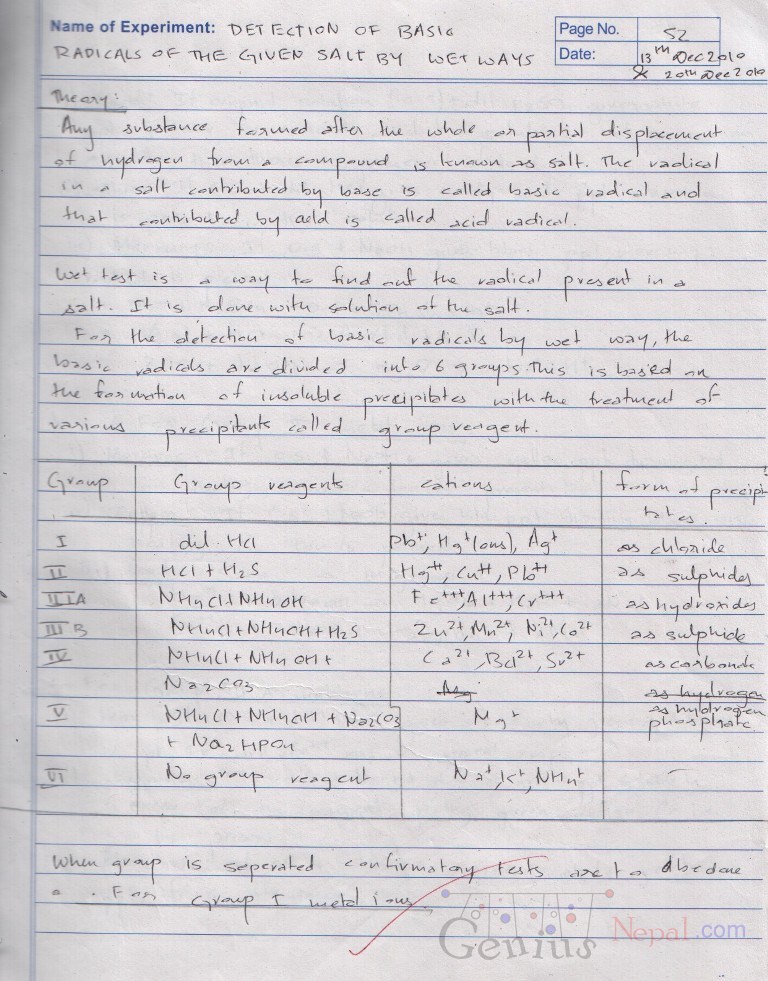 Name of Experiment: DETECTION OF BASIC
Page No. 52
RADICALS OF THE GIVEN SALT BY WET WAYS
Date: 13th Dec 2010
& 20th Dec 2010
Theory:
Any substance formed after the whole or partial displacement
of hydrogen from a compound is known as salt. The radical
in a salt contributed by base is called basic radical and
that contributed by acid is called acid radical.
Wet test is a way to find out the radical present in a
salt. It is done with solution of the salt.
For the detection of basic radicals by wet way, the
basic radicals are divided into 6 groups. This is based on
the formation of insoluble precipitates with the treatment of
various precipitants called group reagent.
Group Group reagents cations form of precipi-
tates.
I dil. HCl Pb++, Hg+(ous), Ag+ as chloride
II HCl + H2S Hg++, Cu++, Pb++ as sulphides
IIIA NH4Cl+NH4OH Fe+++, Al+++, Cr+++ as hydroxides
III B NH4Cl+NH4OH+H2S Zn2+, Mn2+, Ni2+, Co2+ as sulphide
IV NH4Cl + NH4OH + Ca2+, Ba2+, Sr2+ as carbonate
Na2CO3 Mg as hydrogen
V NH4Cl+NH4OH + Na2CO3 Mg+ as hydrogen
+ Na2HPO4 phosphate
VI No group reagent Na+, K+, NH4+ –
When group is seperated confirmatory tests are to be done
. For Group I metal ions
Genius Nepal.com